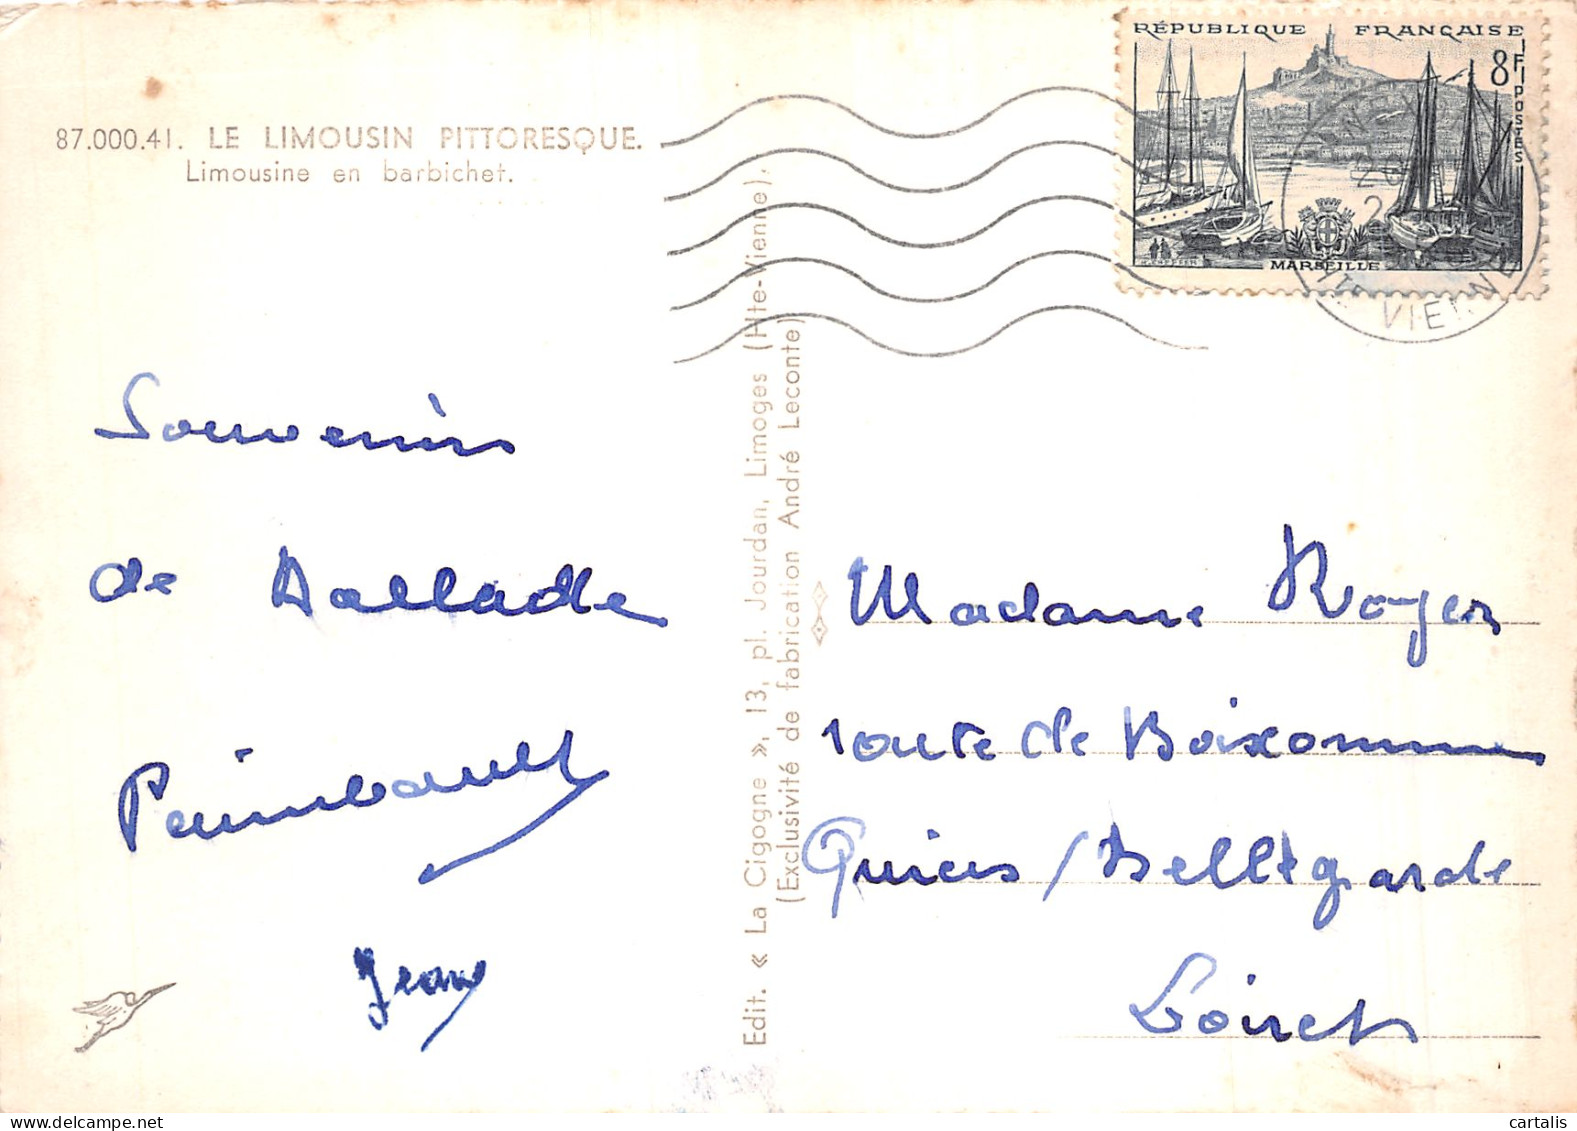 87.000.41. LE LIMOUSIN PITTORESQUE.
Limousine en barbichet.
RÉPUBLIQUE FRANÇAISE
8F
POSTES
MARSEILLE
Hte VIENNE
Souvenirs
de
Jean
Edit. « La Cigogne », 13, pl. Jourdan, Limoges (Hte-Vienne).
(Exclusivité de fabrication André Leconte)
Madame Royer
route de Boiscommun
Quiers / Bellegarde
Loiret
cartalis